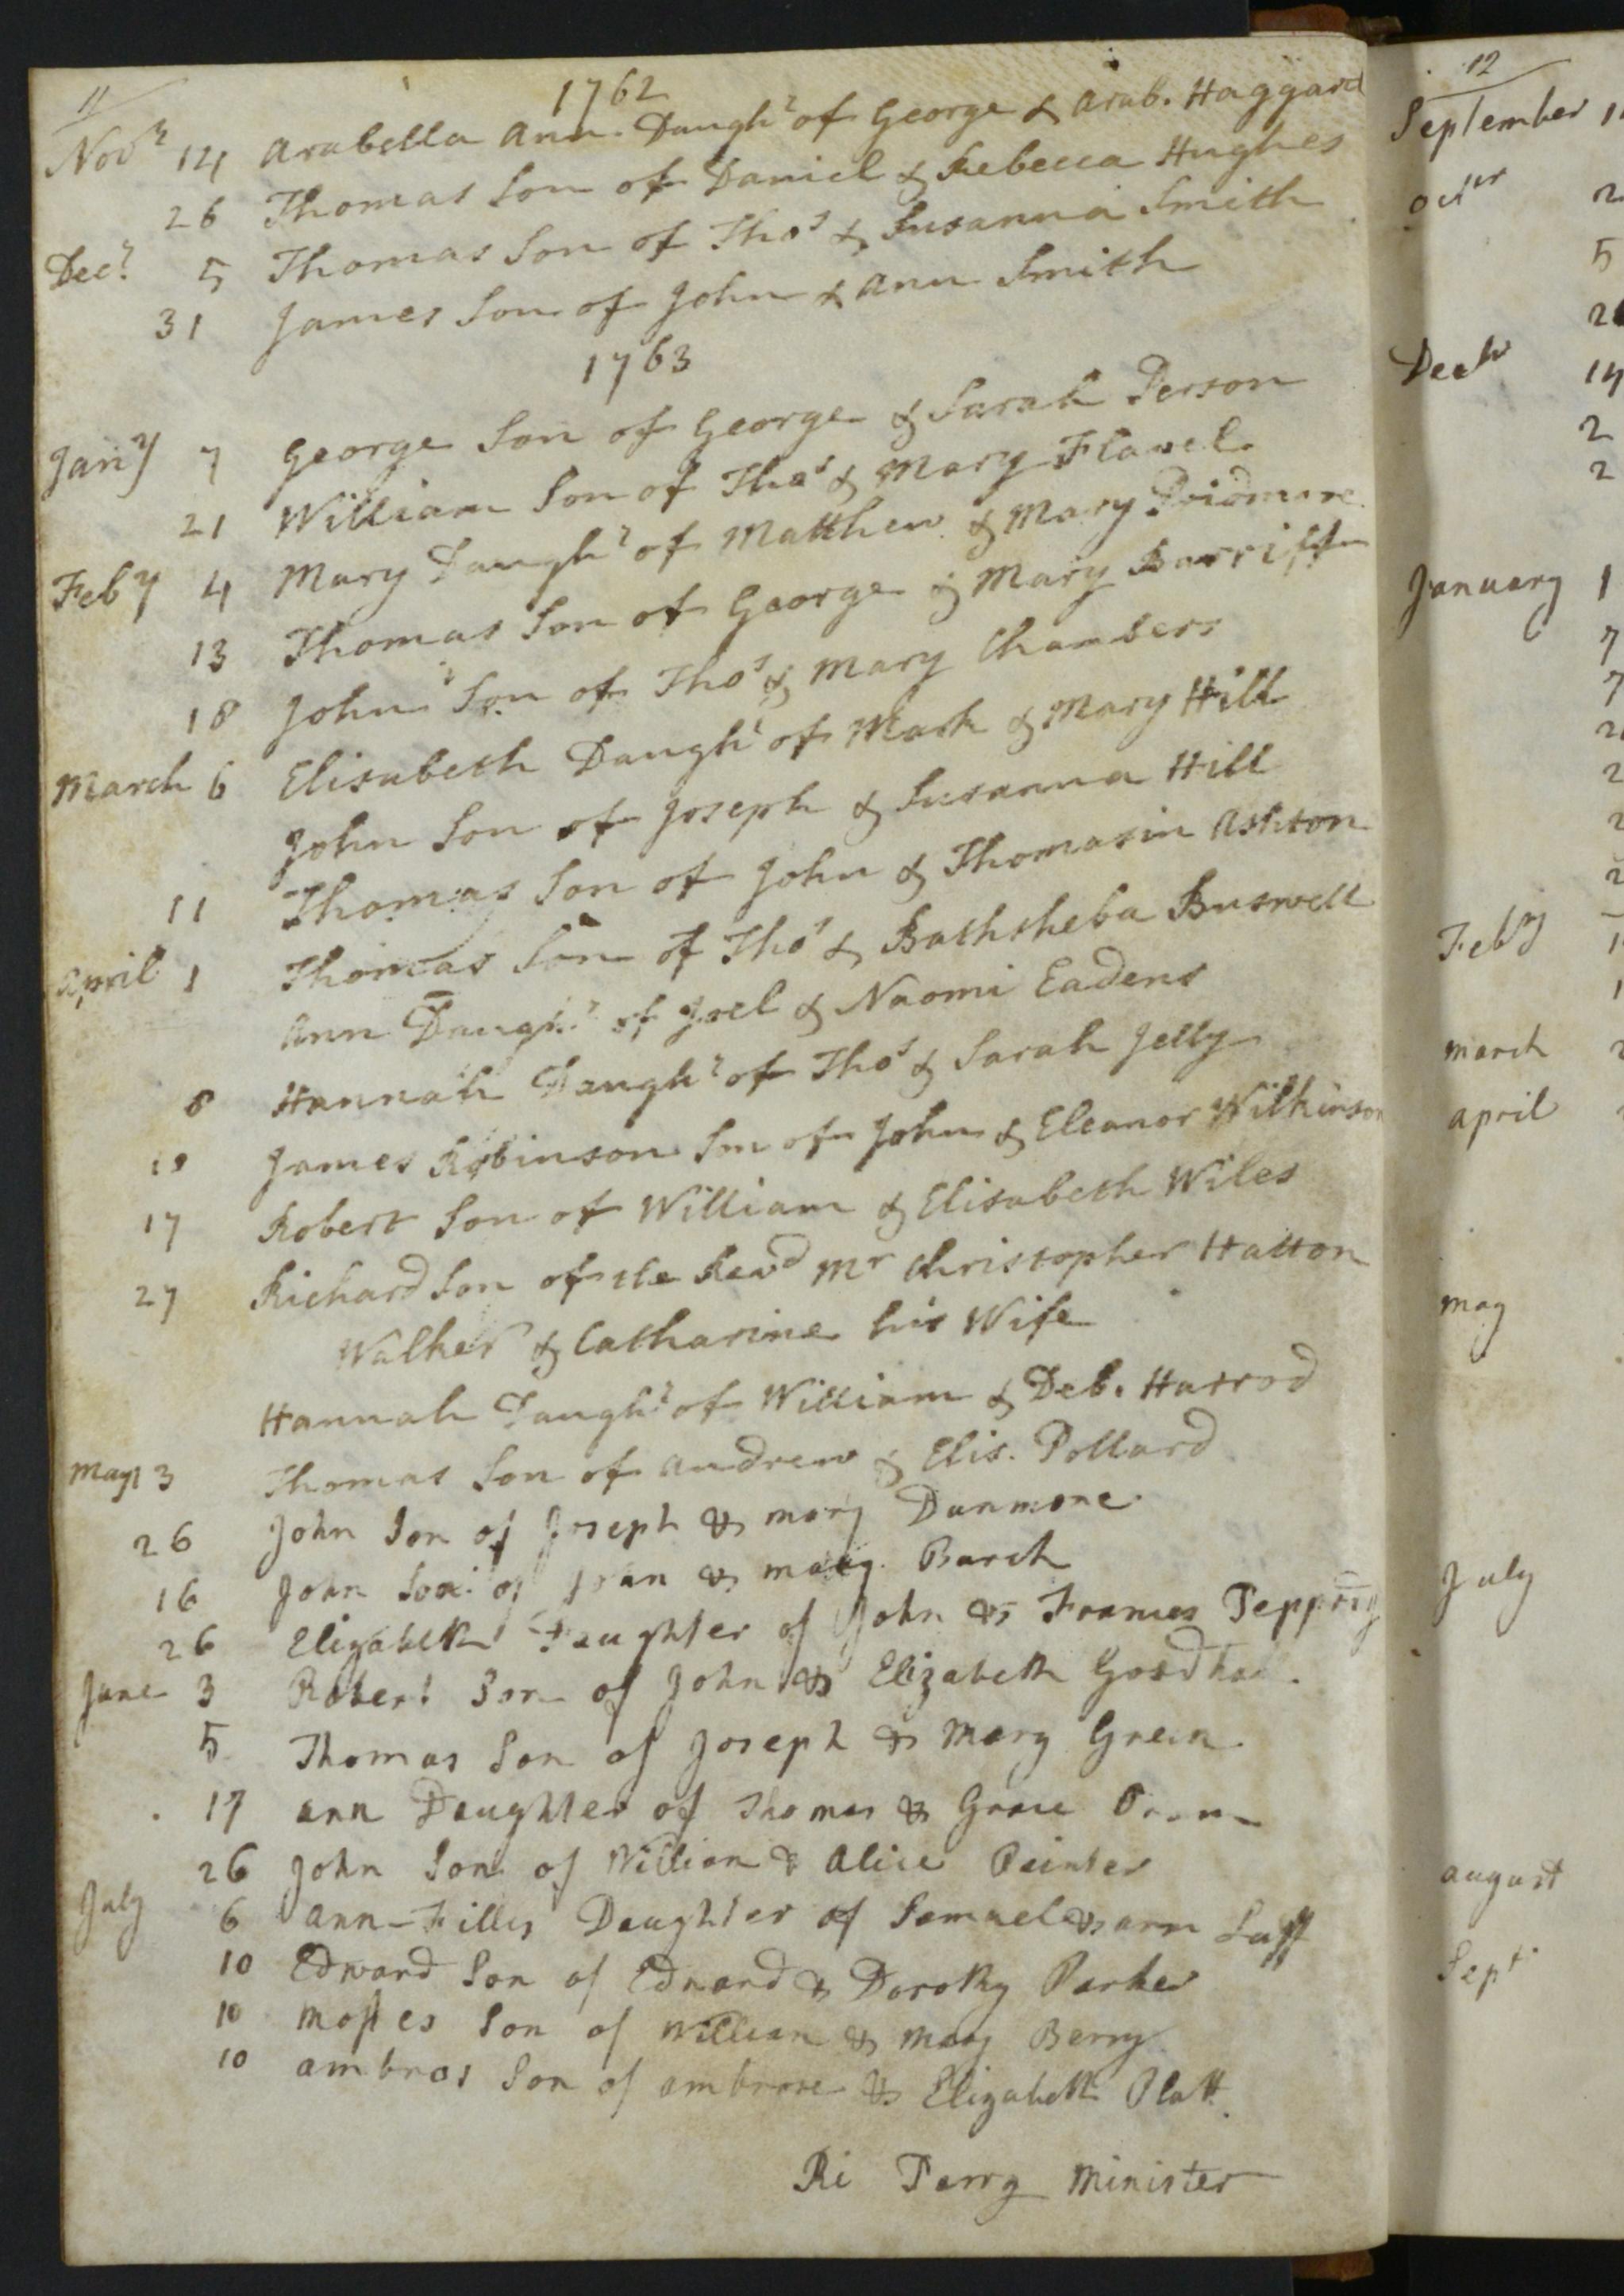 11
1762
Novr 14 Arabella Ann Daughr of George & Arab. Haggard
26 Thomas Son of Daniel & Rebecca Hughes
Decr 5 Thomas Son of Thos & Susanna Smith
31 James Son of John & Ann Smith
1763
Jany 7 George Son of George & Sarah Person
21 William Son of Thos & Mary Flavel
Feby 4 Mary Daughr of Matthew & Mary Pridmore
13 Thomas Son of George & Mary Barriff
18 John Son of Thos & Mary Chambers
March 6 Elisabeth Daughr of Mark & Mary Hill
John Son of Joseph & Susanna Hill
11 Thomas Son of John & Thomasin Ashton
April 1 Thomas Son of Thos & Bathsheba Buswell
Ann Daughr of Joel & Naomi Eadens
8 Hannah Daughr of Thos & Sarah Jelly
James Robinson Son of John & Eleanor Wilkinson
17 Robert Son of William & Elisabeth Wiles
27 Richard Son of the Revd Mr Christopher Hatton
Walker & Catharine his Wife
Hannah Daughr of William & Deb. Harrod
May 3 Thomas Son of Andrew & Elis. Pollard
26 John Son of Joseph & mary Dunmore
16 John Son of & mary Barch
26 Elizabeth Daughter of John & Frances
June 3 Robert Son of John & Elizabeth
5 Thomas Son of Joseph & Mary Green
17 ann Daughter of Thomas & Grace
26 John Son of William & Alice Painter
July 6 ann-Filles Daughter of Samuel & ann
10 Edward Son of Edward & Dorothy Parker
10 Mosses Son of William & Mary Berry
10 ambros Son of ambrose & Elizabeth Platt
Ri Perry Minister
12
September 1
octer 2
5
2
Decbr 14
2
2
January 1
7
7
2
2
2
2
Feby
1
march
april
may
July
august
Sept